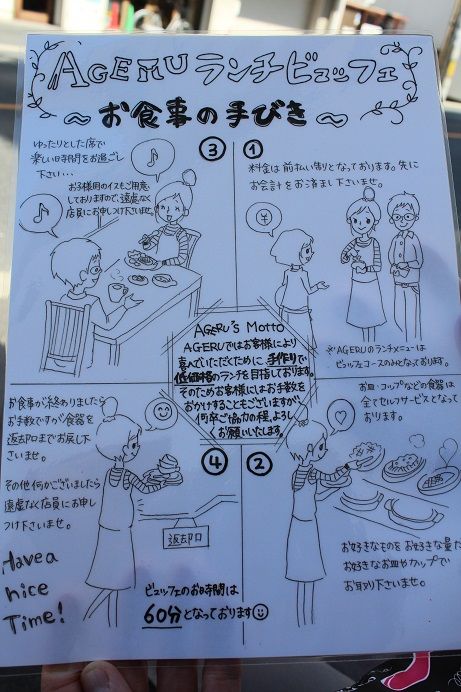 AGERU ランチビュッフェ
～お食事の手びき～
①
料金は前払い制りとなっております。先に
お会計をお済まし下さいませ。
¥
※AGERUのランチメニューは
ビュッフェコースのみとなっております。
②
お皿・コップなどの食器は
全てセルフサービスとなって
おります。
お好きなものを お好きな量だけ
お好きなお皿やカップで
お取り下さいませ。
③
ゆったりとした席で
楽しい時間をお過ごし
下さい・・・
お子様用のイスもご用意
しておりますので、遠慮なく
店員にお申しつけ下さいませ。
④
お食事が終わりましたら
お手数ですが食器を
返却口までお戻し下
さいませ。
その他何かございましたら
遠慮なく店員にお申し
つけ下さいませ。
返却口
Have a
nice
Time!
ビュッフェのお時間は
60分となっております
AGERU'S Motto
AGERUではお客様により
喜んでいただくために手作りで
低価格のランチを目指しております。
そのためお客様にはお手数を
おかけすることもございますが
何卒ご協力の程、よろしく
お願いいたします。